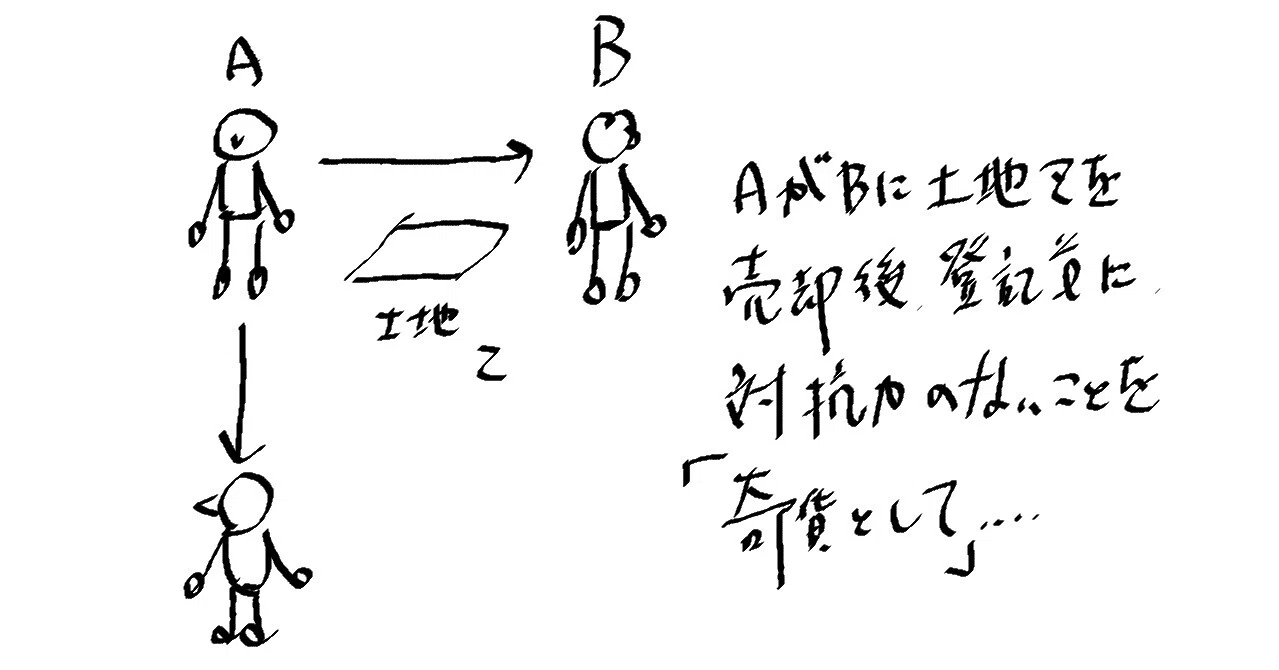 A
B
土地
乙
AがBに土地乙を
売却後、登記前に
対抗力のないことを
「奇貨として」....